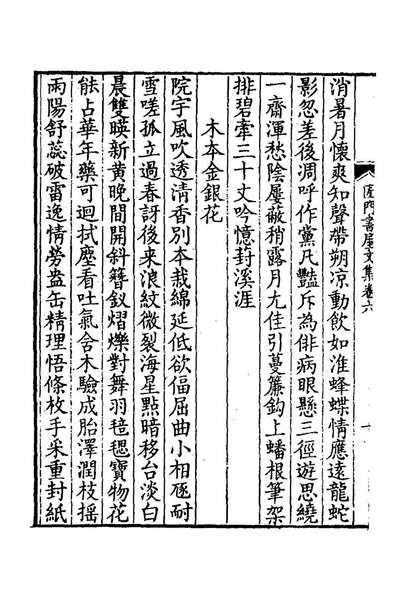 匠門書屋文集卷六
消暑月懷爽知聲帶朔凉動飲如淮蜂蝶情應遠龍蛇
影忽差後凋呼作黨凡豔斥為俳病眼懸三徑遊思繞
一齋渾愁陰屢蔽稍露月尢佳引蔓簾鈎上蟠根筆架
排碧牽三十丈吟憶葑溪涯
木本金銀花
院宇風吹透清香別本栽綿延低欲偪屈曲小相豗耐
雪嗟孤立過春訝後來浪紋微裂海星點暗移台淡白
晨雙暎新黄晚間開斜簪釵熠爍對舞羽毰毸寶物花
能占華年藥可迴拭塵看吐氣含木驗成胎澤潤枝摇
雨陽舒蕊破雷逸情勞盎缶精理悟條枚手采重封紙